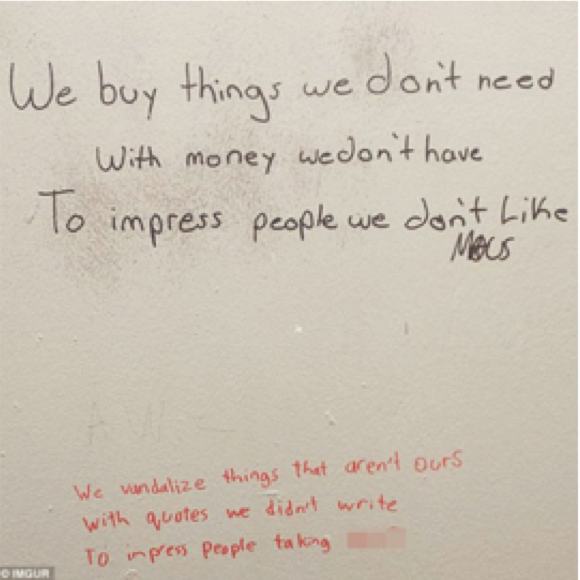 We buy things we don't need
With money we don't have
To impress people we don't Like
We vandalize things that aren't ours
With quotes we didn't write
To impress people taking
© IMGUR